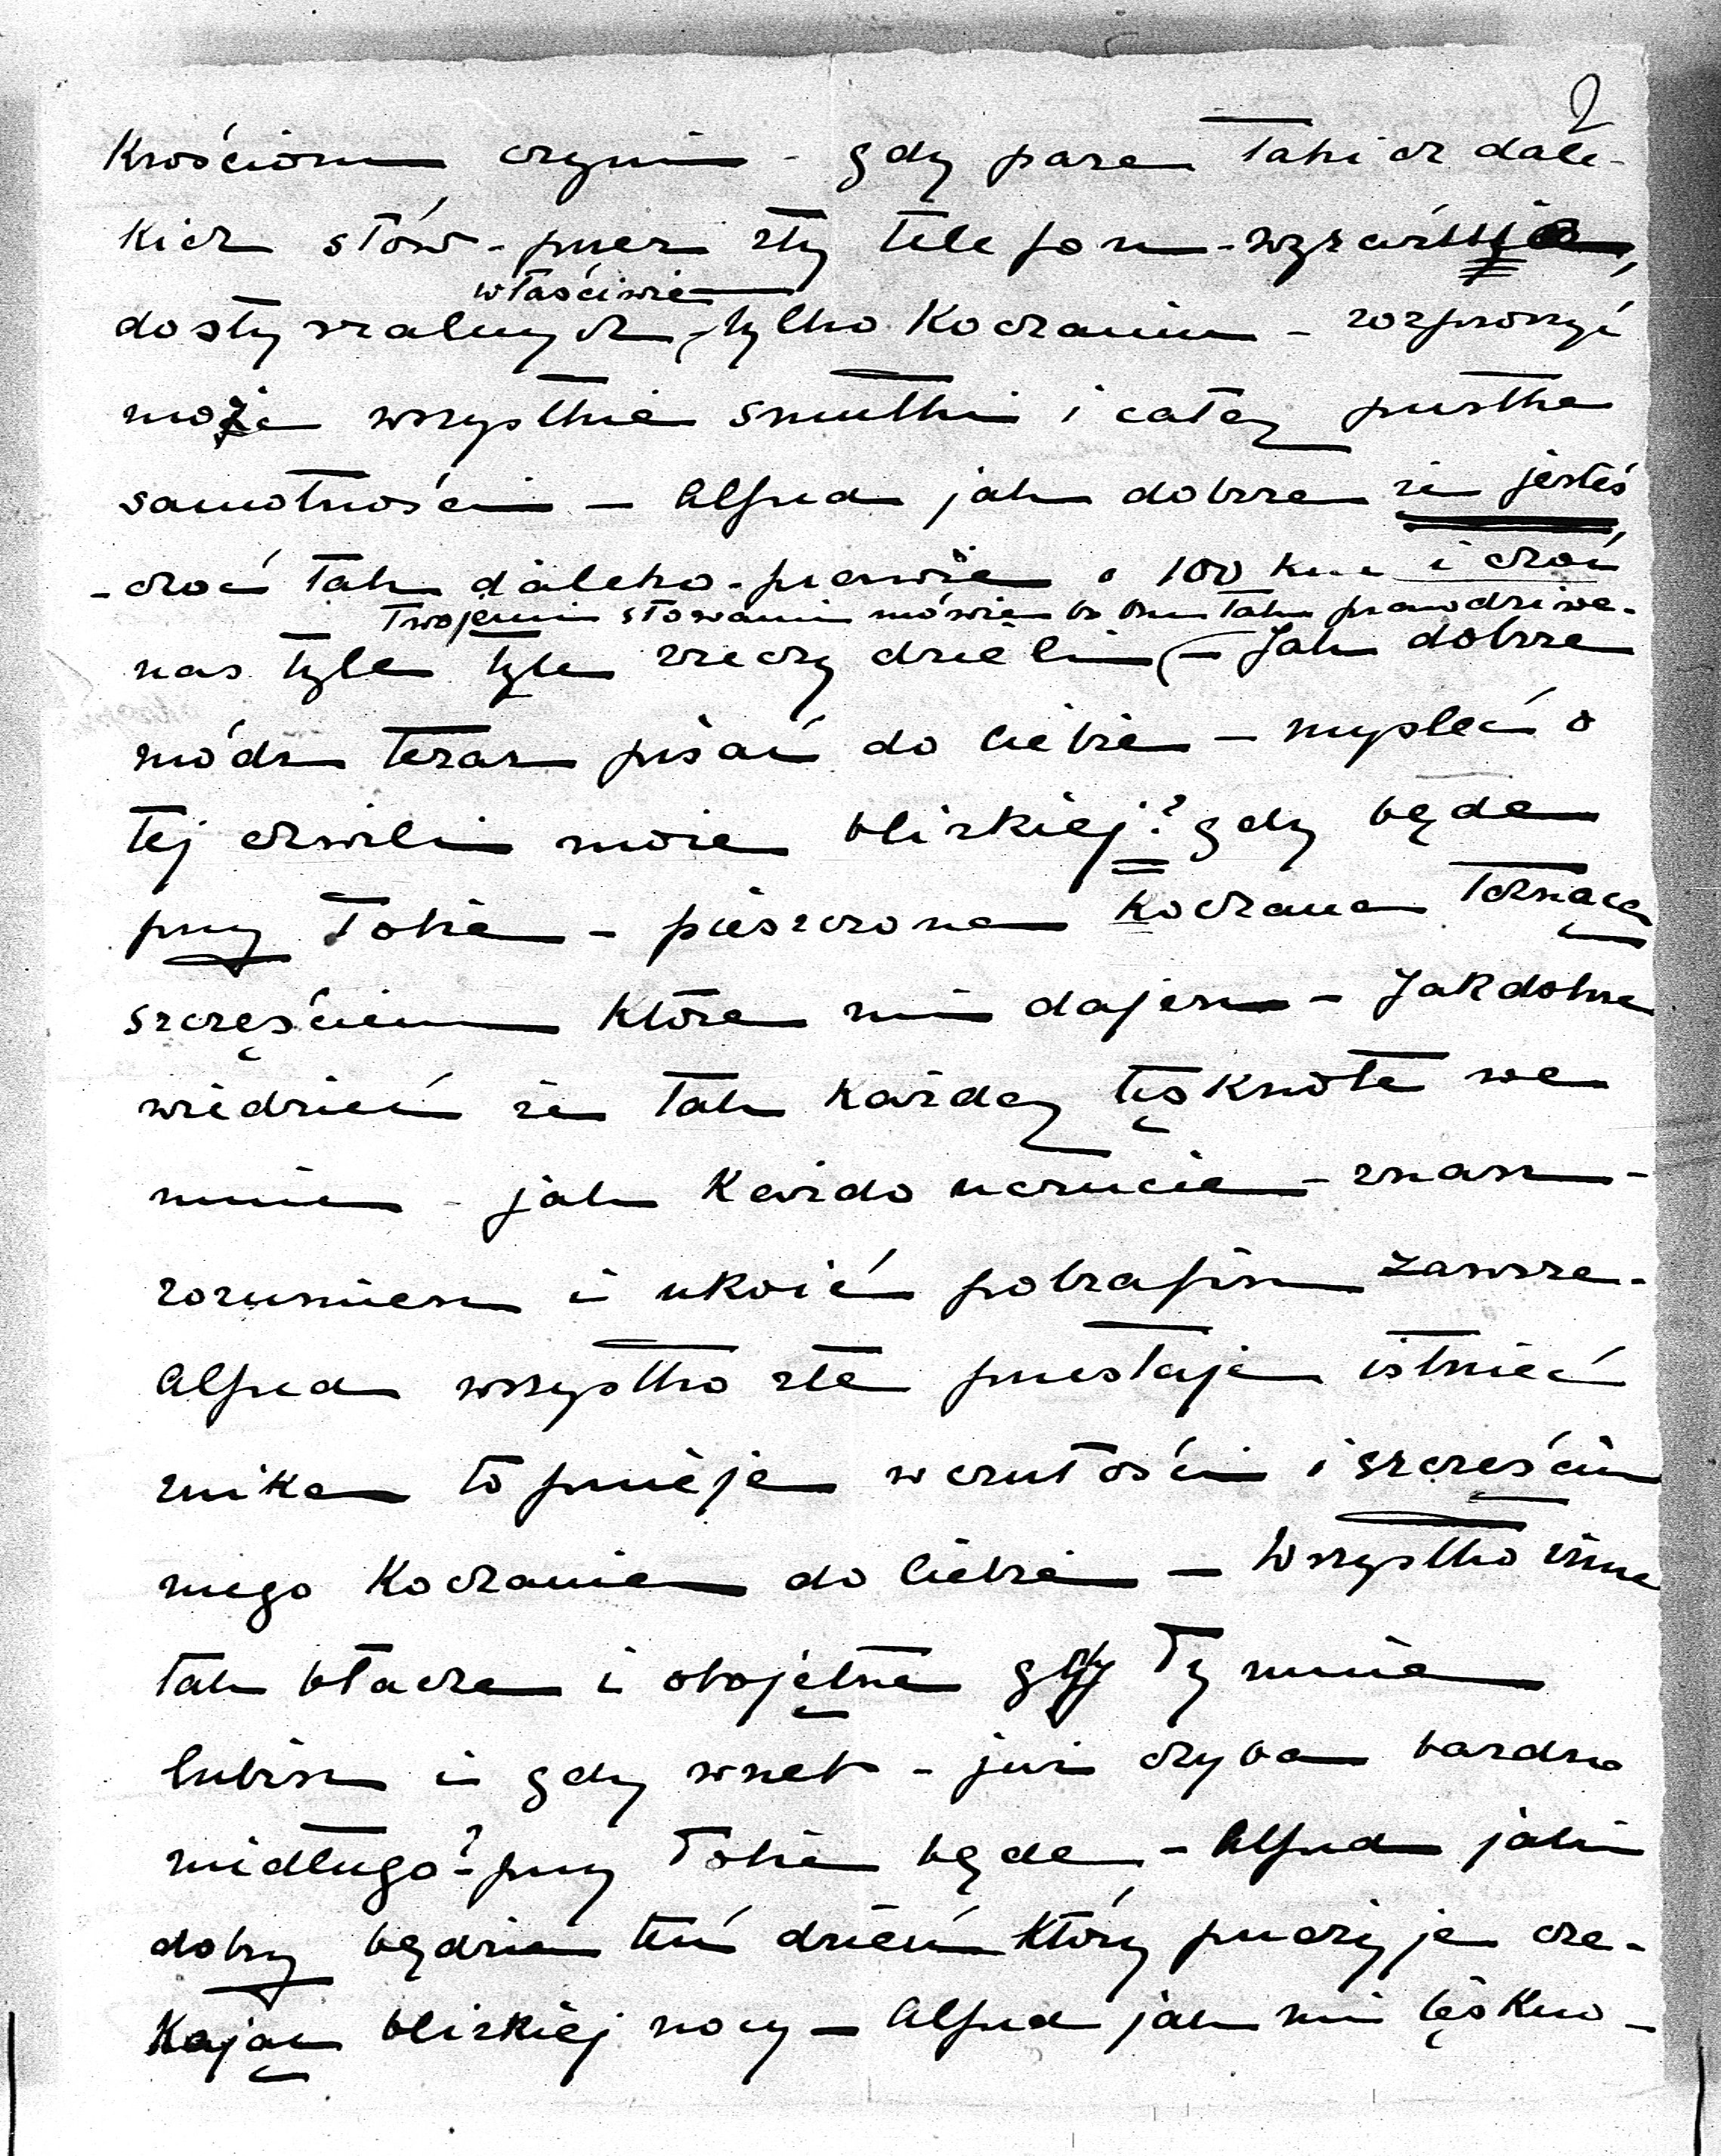 2
krościom czyni - gdy parę takich dale-
kich słów - przez zły telefon - wyraźnie,
właściwie
dosłyszalnych, tylko kochaniu - rozproszyć
może wszystkie smutki i całą pustkę
samotności - Alfred jak dobrze że jesteś
- choć tak daleko - prawie o 100 km i choć
Twojemi słowami mówię bo one takie prawdziwe -
nas tyle tyle rzeczy dzieli (- Jak dobrze
módz teraz pisać do Ciebie - myśleć o
tej chwili może blizkiej? gdy będę
przy Tobie - pieszczona kochana
szczęściem które mi dajesz - Jak dobrze
wiedzieć że tak każdą tęsknotę we
mnie - jak każde uczucie - znasz -
rozumiesz i ukoić potrafisz zawsze -
Alfred wszystko złe przestaje istnieć
znika topnieje w czułości i szczęściu
mego kochania do Ciebie - Wszystko inne
tak błache i obojętne gdy Ty mnie
lubisz i gdy wnet - już chyba bardzo
niedługo? - przy Tobie będę - Alfred jaki
dobry będzie ten dzień który przeżyję cze-
kając blizkiej nocy - Alfred jak mi tęskno -